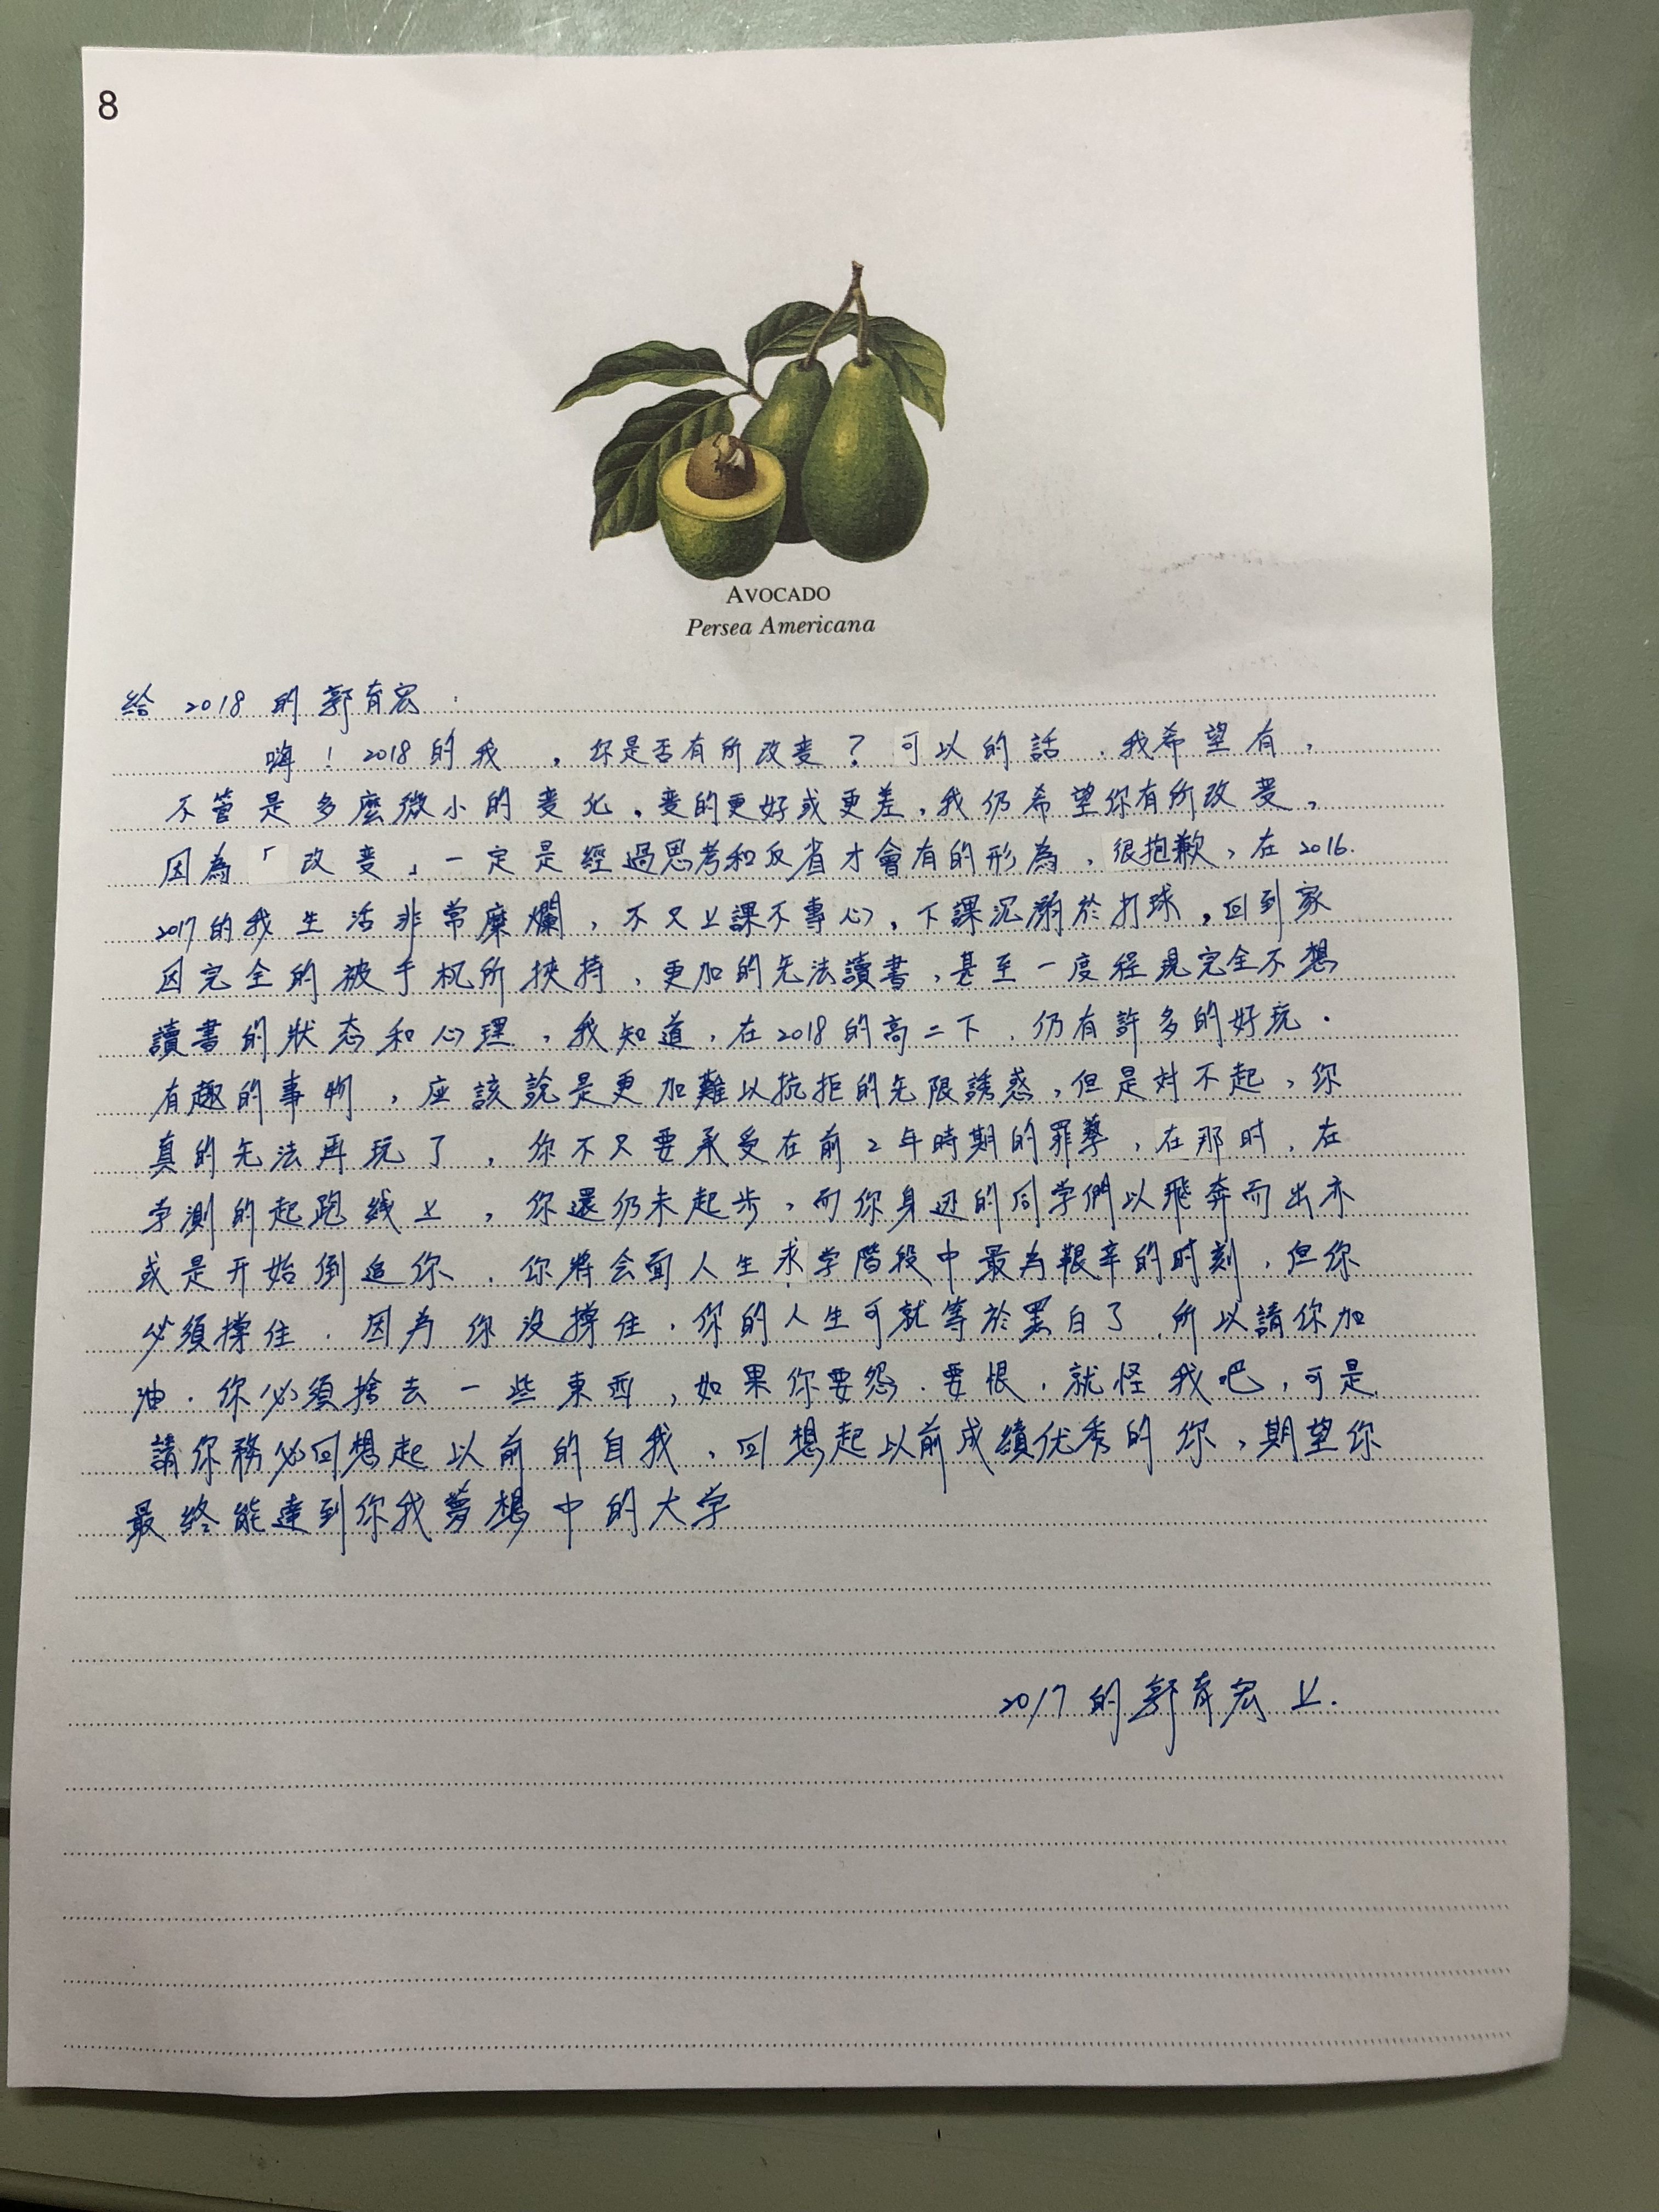 8
AVOCADO
Persea Americana
給 2018 的郭育宏:
嗨!2018的我,你是否有所改变?可以的話、我希望有,
不管是多麼微小的变化,变的更好或更差,我仍希望你有所改变,
因為「改变」一定是經過思考和反省才會有的形為,很抱歉,在2016.
2017的我生活非常糜爛,不只上課不專心,下課沉溺於打球,回到家
因完全的被手机所挾持,更加的无法讀書,甚至一度程現完全不想
讀書的狀态和心理,我知道,在2018的高二下,仍有許多的好玩.
有趣的事物,应該說是更加難以抗拒的无限誘惑,但是対不起,你
真的无法再玩了,你不只要承受在前2年時期的罪孽,在那时,在
学測的起跑线上,你還仍未起步,而你身边的同学們以飛奔而出亦
或是开始倒追你.你將会面人生求学階段中最为艱辛的时刻,但你
必須撐住.因为你没撐住,你的人生可就等於黑白了.所以請你加
油.你必須捨去一些東西,如果你要怨.要恨,就怪我吧,可是
請你務必回想起以前的自我,回想起以前成績优秀的你,期望你
最终能達到你我夢想中的大学
2017的郭育宏上.